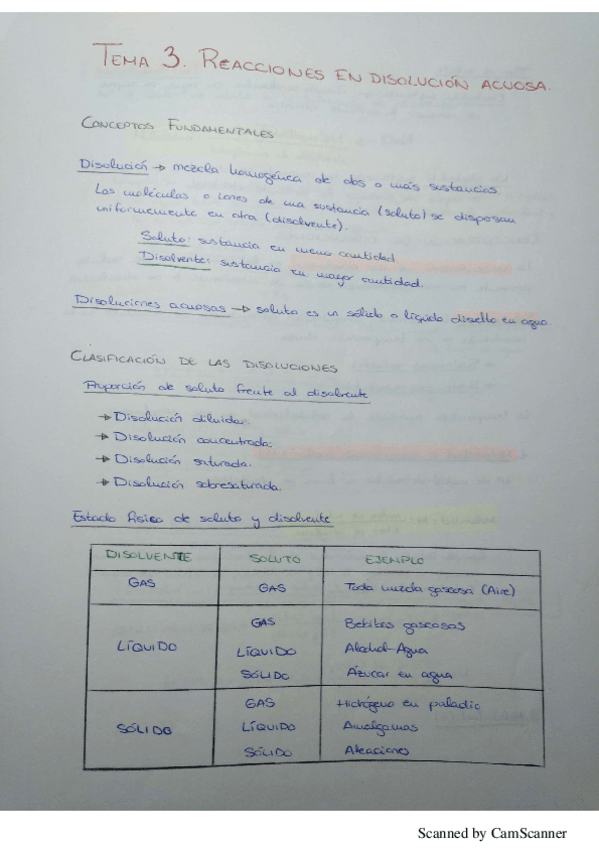 TEMA 3. REACCIONES EN DISOLUCIÓN ACUOSA.
CONCEPTOS FUNDAMENTALES
Disolución → mezcla homogénea de dos o más sustancias.
Las moléculas o iones de una sustancia (soluto) se dispersan
uniformemente en otra (disolvente).
Soluto: sustancia en menor cantidad
Disolvente: sustancia en mayor cantidad.
Disoluciones acuosas → soluto es un sólido o líquido disuelto en agua.
CLASIFICACIÓN DE LAS DISOLUCIONES
Proporción de soluto frente al disolvente
→ Disolución diluida.
→ Disolución concentrada.
→ Disolución saturada.
→ Disolución sobresaturada.
Estado físico de soluto y disolvente
DISOLVENTE SOLUTO EJEMPLO
GAS GAS Toda mezcla gaseosa (Aire)
GAS Bebidas gaseosas
LÍQUIDO LÍQUIDO Alcohol-Agua
SÓLIDO Ázucar en agua
GAS Hidrógeno en paladio
SÓLIDO LÍQUIDO Amalgamas
SÓLIDO Aleaciones
Scanned by CamScanner